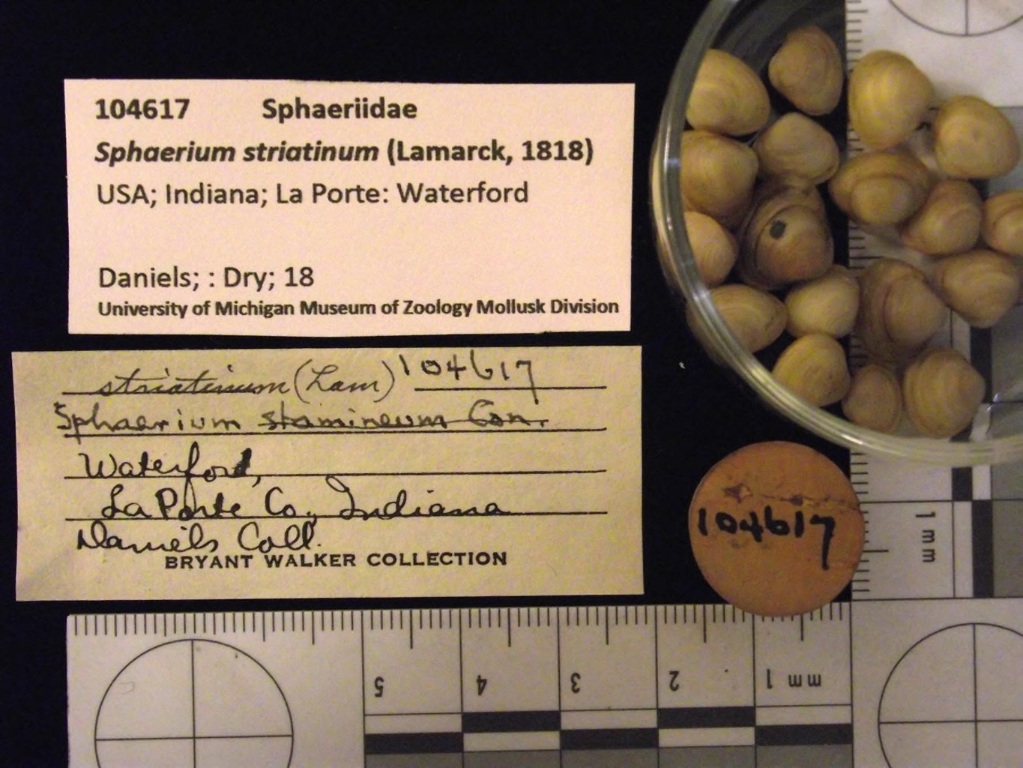 104617 Sphaeriidae
Sphaerium striatinum (Lamarck, 1818)
USA; Indiana; La Porte: Waterford
Daniels; : Dry; 18
University of Michigan Museum of Zoology Mollusk Division
striatinum (Lam) 104617
Sphaerium stamineum Con.
Waterford,
La Porte Co., Indiana
Daniels Coll.
BRYANT WALKER COLLECTION
104617
1 mm
5 4 3 2 1 mm